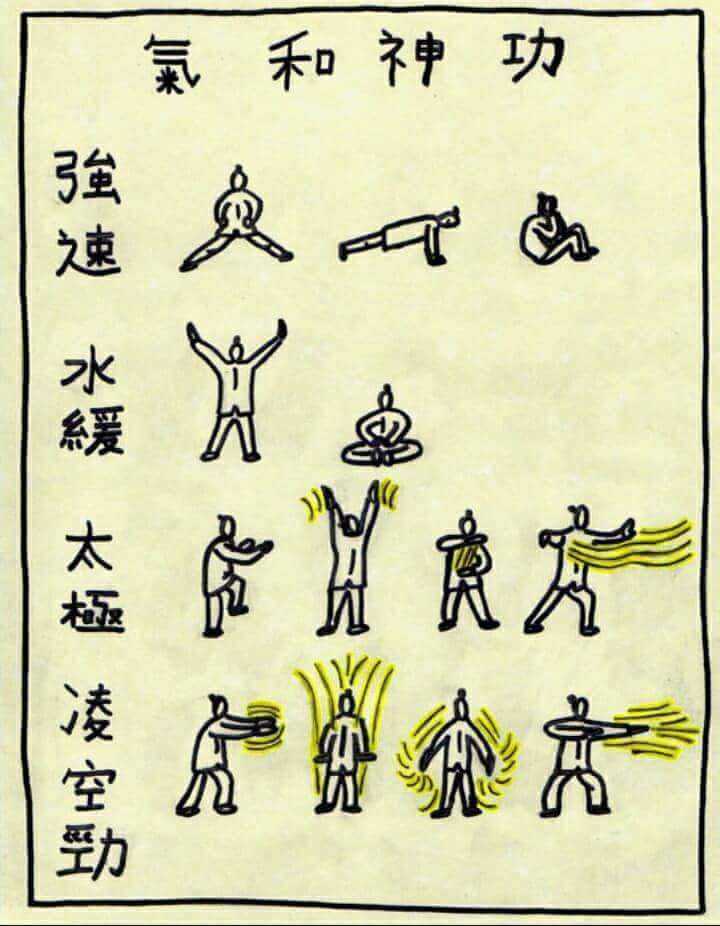 氣和神功
強速
水緩
太極
凌空勁